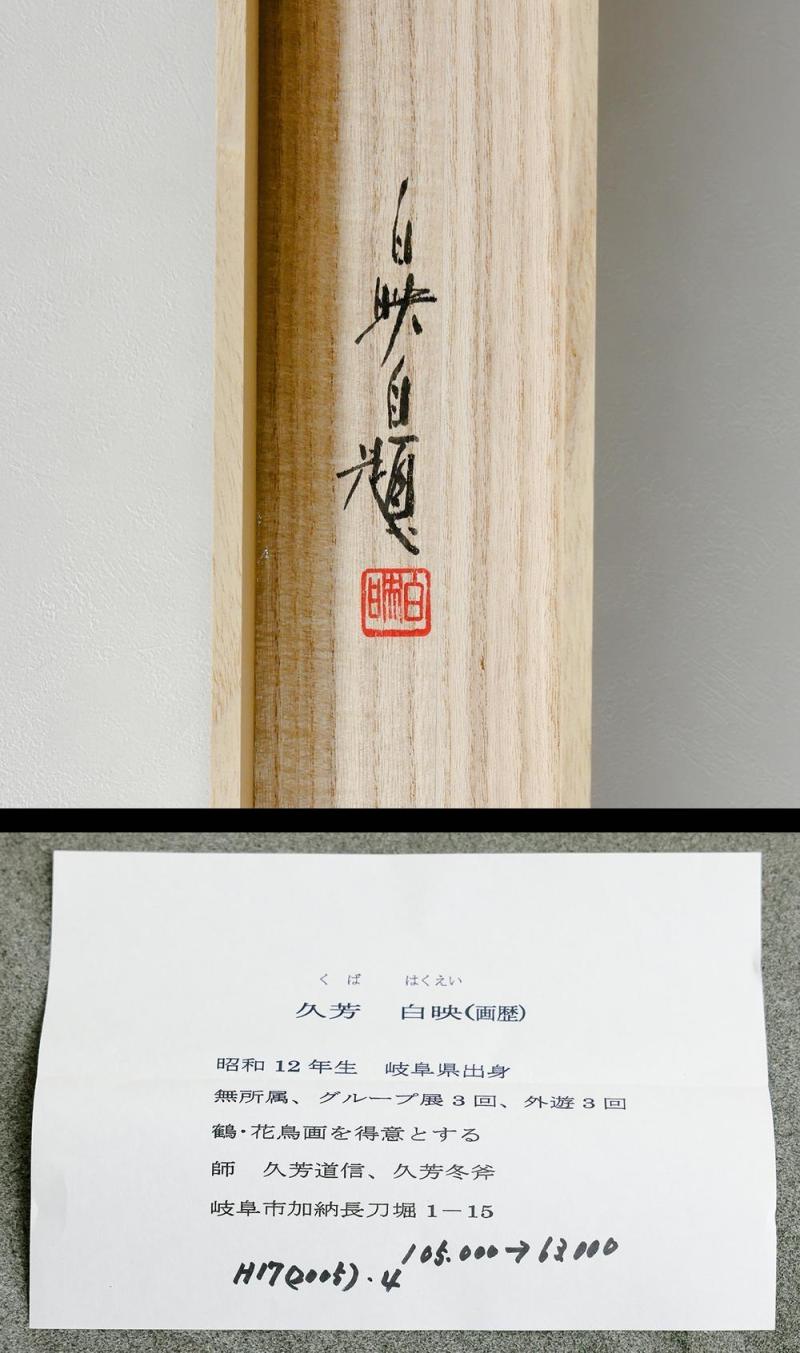 白映自題
白映
くば はくえい
久芳 白映(画歴)
昭和12年生 岐阜県出身
無所属、グループ展3回、外遊3回
鶴・花鳥画を得意とする
師 久芳道信、久芳冬斧
岐阜市加納長刀堀1－15
H17(2005).4 105.000→63000